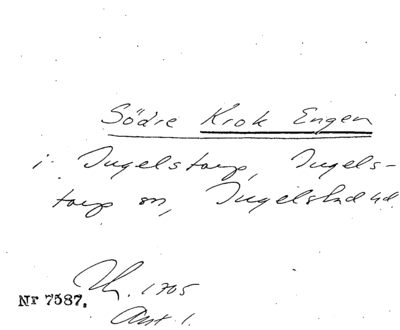 Södre Krok Engen
i Ingelstorp, Ingels-
torp sn, Ingelstad hd.
Nr 7587.
Lh. 1705
Akt 1.